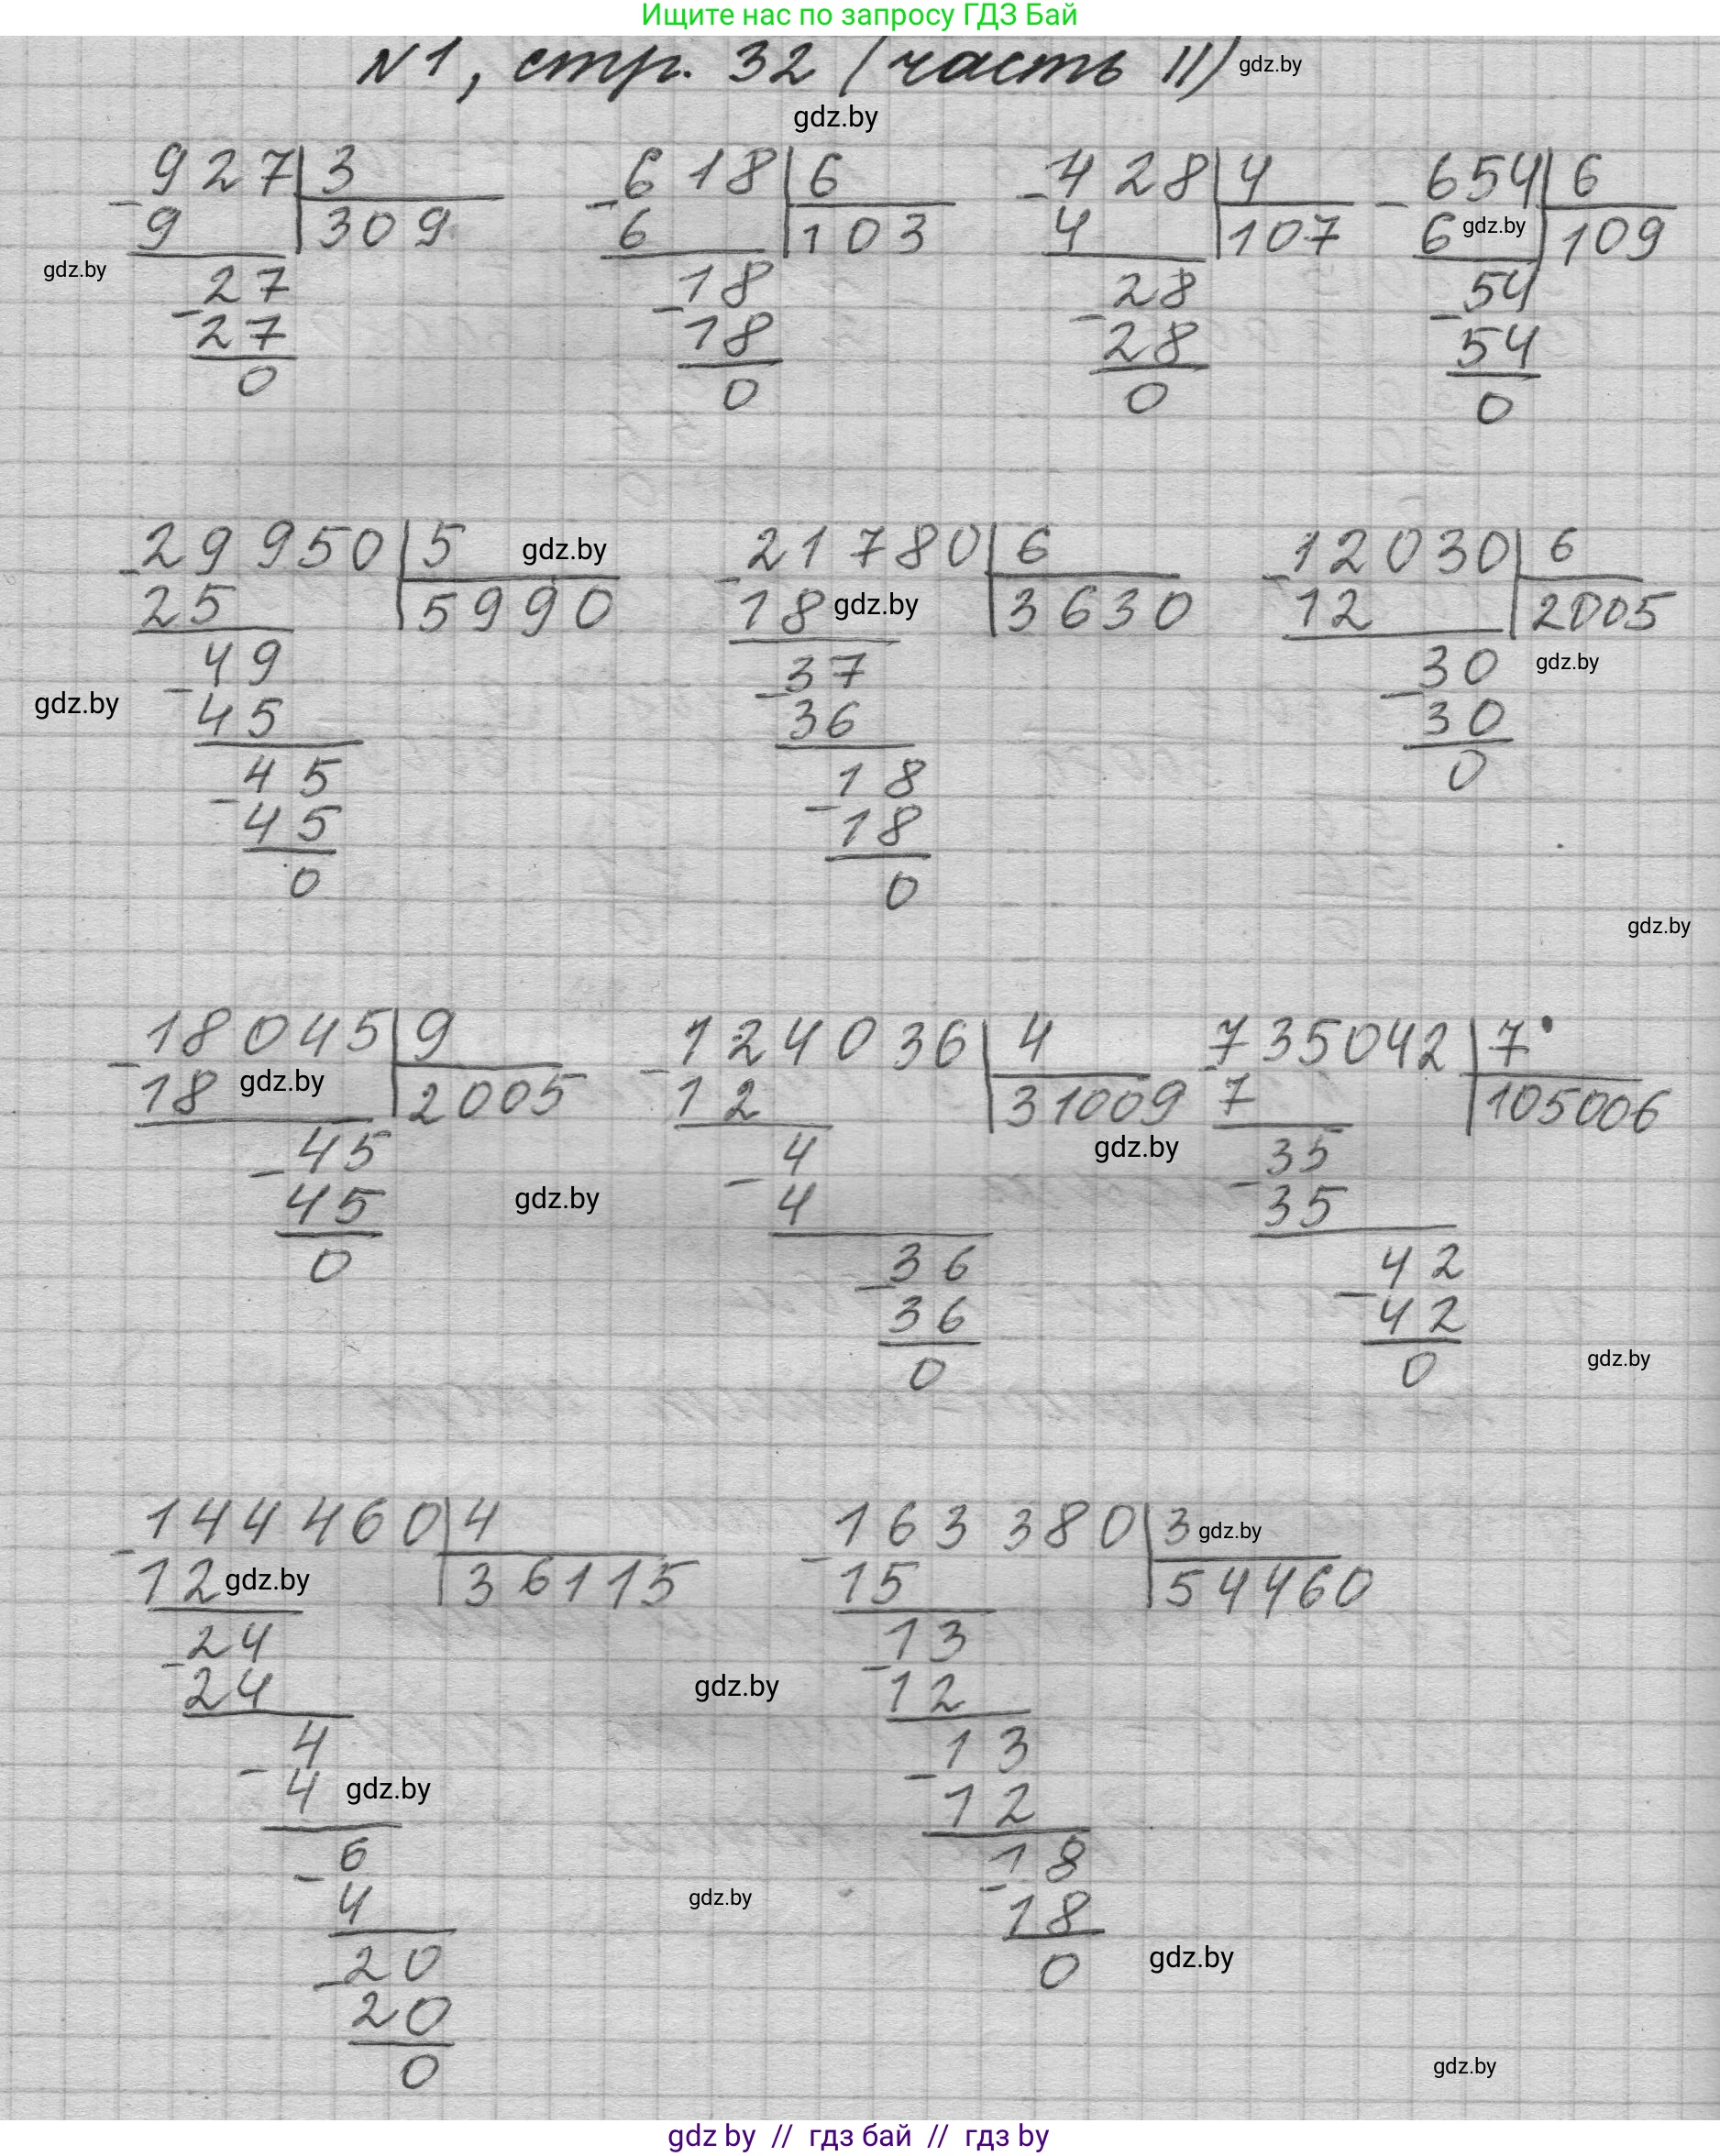 Ищите нас по запросу ГДЗ Бай
№1, стр. 32 (часть II) gdz.by
gdz.by
927 3 618 6 428 4 654 6
9 309 6 103 4 107 6 gdz.by 109
gdz.by 27 18 28 54
27 18 28 54
0 0 0 0
29950 5 gdz.by 21780 6 12030 6
25 5990 18 gdz.by 3630 12 2005
49 37 30 gdz.by
gdz.by 45 36 30
45 18 0
45 18
0 0
gdz.by
18045 9 124036 4 735042 7
18 gdz.by 2005 12 31009 7 105006
45 4 gdz.by 35
45 gdz.by 4 35
0 36 42
36 42
0 0 gdz.by
144460 4 163380 3 gdz.by
12 gdz.by 36115 15 54460
24 13
24 gdz.by 12
4 13
4 gdz.by 12
6 18
4 gdz.by 18
20 0 gdz.by
20
0 gdz.by
gdz by // гдз бай // гдз by